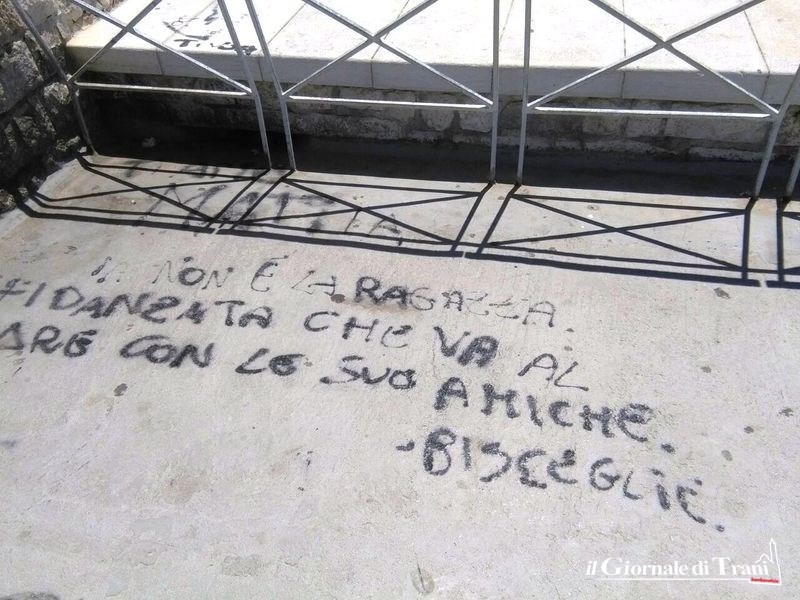 NON È LA RAGAZZA.
FIDANZATA CHE VA AL
ARE CON LE SUO AMICHE.
-BISCEGLIE.
il Giornale di Trani